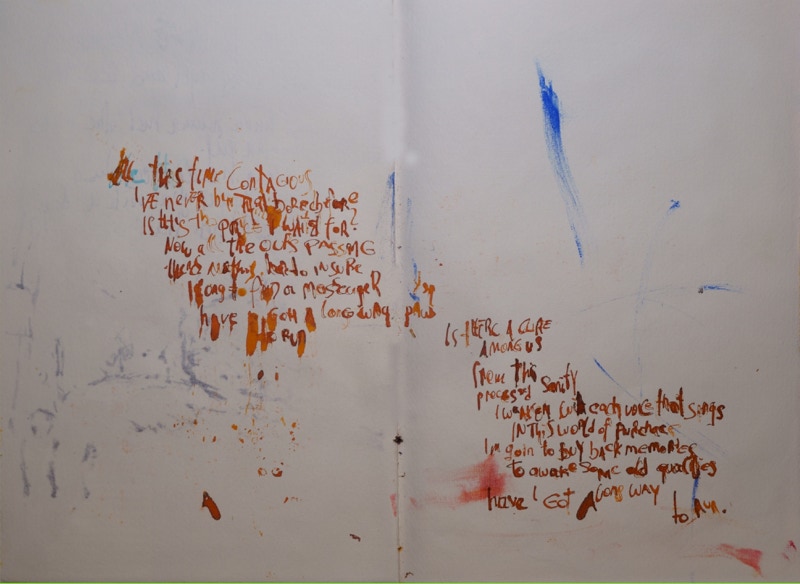 this time contagious
I'VE never bin that bored before
IS this the price I waited for?
Now all the OURS PASSING
nothing to INSURE
I to find a messenger
have I GOt A long way
to RUN
IS tHERE A CURE
AMONG US
from this
processed Sanity
I weaken with each voice that sings
IN this world of purchase
Im goin to BUY back memories
to awake some old qualities
have I GOt A long WAY
to RUN.